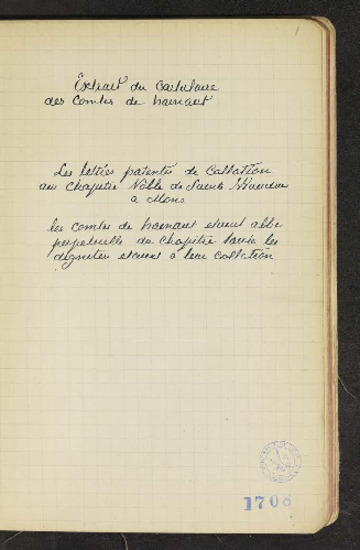 1
Extrait du Cartulaire
des Comtes de hainaut
Les lettres patentes de Collation
au Chapitre Noble de Sainte Waudru
a Mons
les comtes de hainaut etaient abbe
perpetuelle du Chapitre toute les
dignitee etaient a leur collation
1708